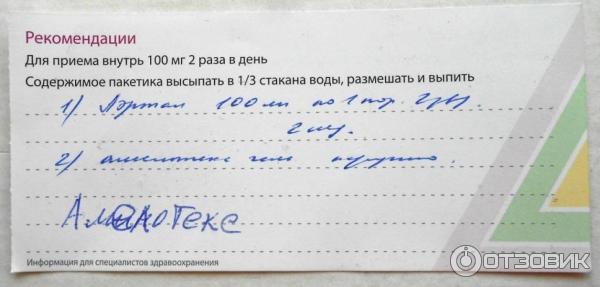 Рекомендации
Для приема внутрь 100 мг 2 раза в день
Содержимое пакетика высыпать в 1/3 стакана воды, размешать и выпить
1) Аэртал 100 мг по 1 пор. 2 р/д.
2 нед.
2) амелотекс гель наружно.
Амелотекс
Информация для специалистов здравоохранения
ОТЗОВИК